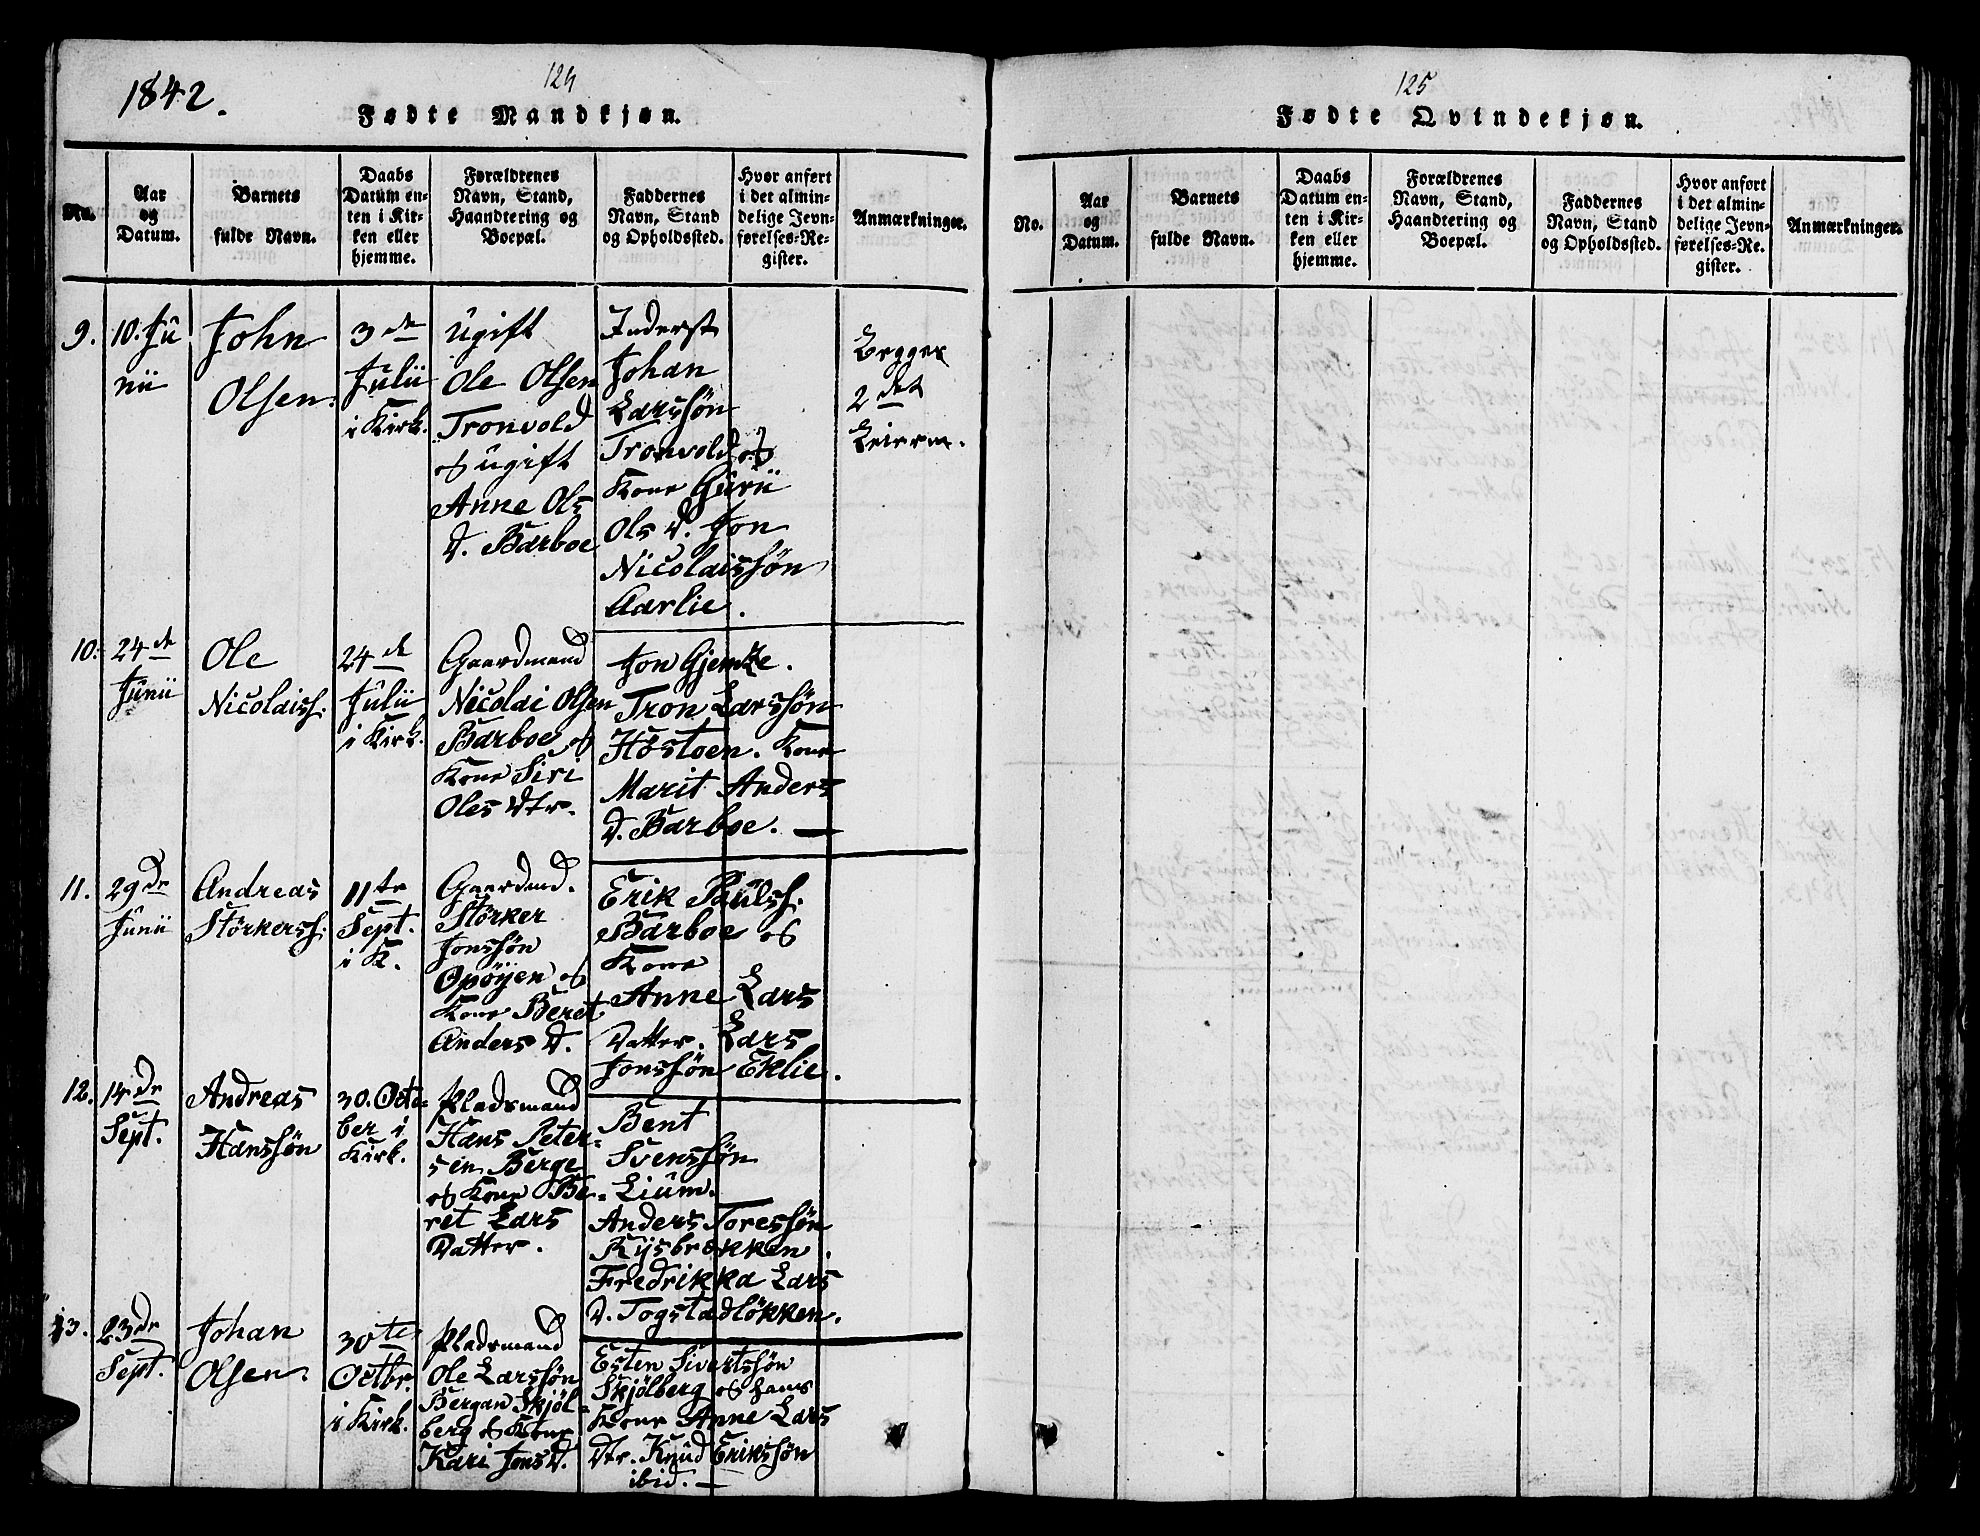 1842.
124
Fødte Mandkjøn.
No.
Aar
og
Datum.
Barnets
fulde Navn.
Daabs
Datum en-
ten i Kir-
ken eller
hjemme.
Forældrenes
Navn, Stand,
Haandtering og
Boepæl.
Faddernes
Navn, Stand
og Opholdssted.
Hvor anført
i det almin-
delige Jevn-
førelses-Re-
gister.
Anmærkninger.
9.
10. Ju
nii
John
Olsen.
3de
Julii
i Kirk.
Ugift
Ole Olsen
Tronvold
og ugift
Anne Ols
D. Barboe
Inderst
Johan
Larssøn
Tronvold og
Kone Guru
Ols D. Jon
Nicolaissøn
Aarlie.
Begges
2det
Leierm.
10.
24de
Junii
Ole
Nicolaiss.
24de
Julii
i Kirk.
Gaardmand
Nicolai Olsen
Barboe og
Kone Siri
Oles Dtr.
Jon Gjemke.
Tron Larssøn
Høstoen. Kone
Marit Anders
D. Barboe.
11.
29de
Junii
Andreas
Størkerss.
11te
Sept.
i K.
Gaardmd.
Størker
Jonssøn
Opøyen og
Kone Beret
Anders D.
Erik Paulss.
Barboe og
Kone
Anne Lars
Datter. Lars
Jonssøn Eklie.
12.
14de
Sept.
Andreas
Hanssøn
30. Octo-
ber i
Kirk.
Pladsmand
Hans Peter-
sen Berge
og Kone Be-
ret Lars
Datter.
Bent
Svenssøn
Lium.
Anders Toressøn
Rysbrækken.
Fredrikka Lars
D. Togstadløkken.
13.
23de
Sept.
Johan
Olsen
30te
Octbr.
i Kirk.
Pladsmand
Ole Larssøn
Bergan Skjøl-
berg og Kone
Kari Jons D.
Esten Sivertssøn
Skjølberg og hans
Kone Anne Lars
Dtr. Knud Erikssøn
ibid.
125
Fødte Qvindekjøn.
No.
Aar
og
Datum.
Barnets
fulde Navn.
Daabs
Datum en-
ten i Kir-
ken eller
hjemme.
Forældrenes
Navn, Stand,
Haandtering og
Boepæl.
Faddernes
Navn, Stand
og Opholdssted.
Hvor anført
i det almin-
delige Jevn-
førelses-Re-
gister.
Anmærkninger.